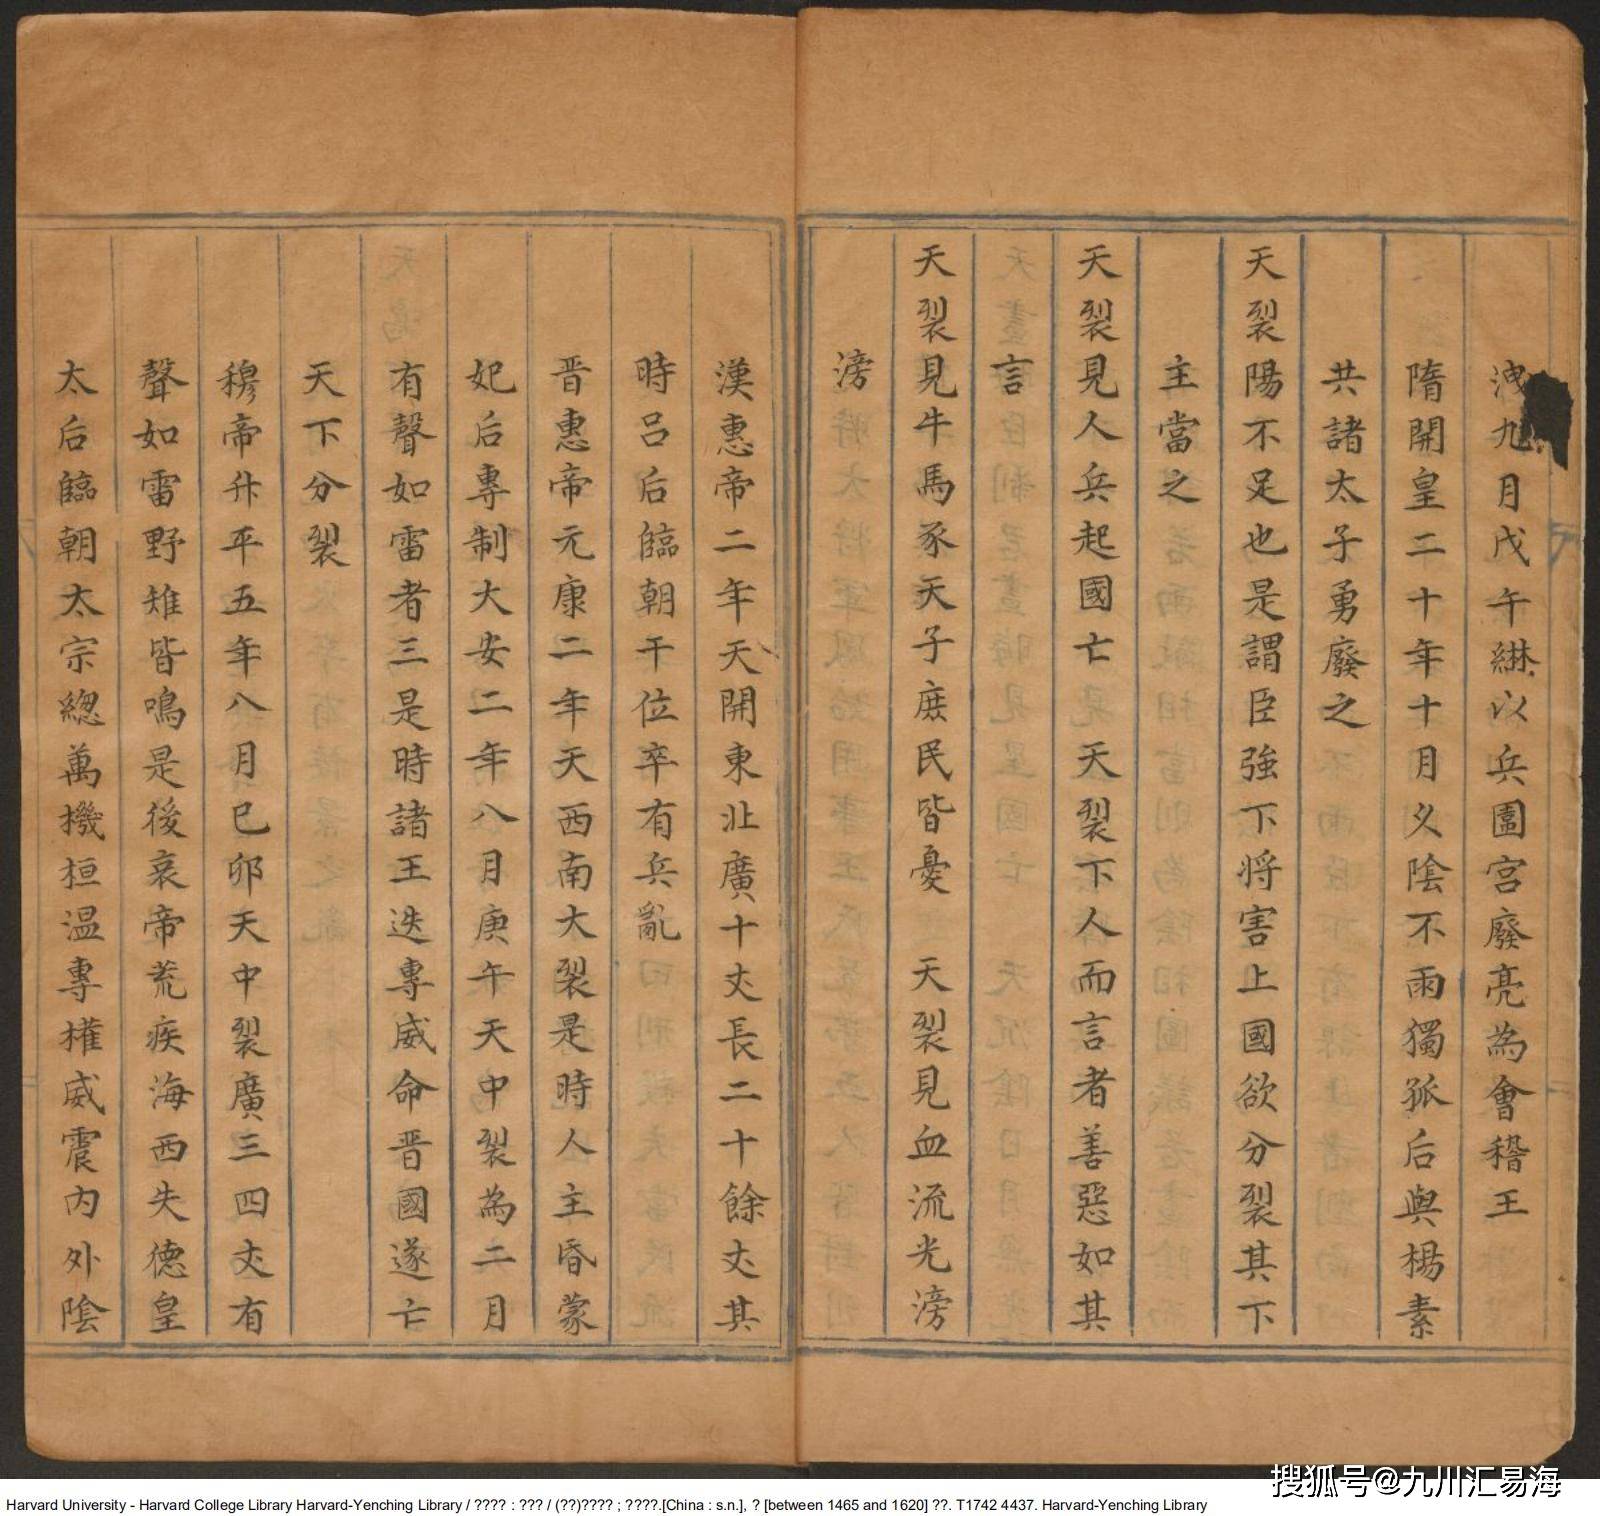 洩九月戊午綝以兵圍宮廢亮為會稽王
隋開皇二十年十月久陰不雨獨孤后與楊素
共諸太子勇廢之
天裂陽不足也是謂臣強下將害上國欲分裂其下
主當之
天裂見人兵起國亡　天裂下人而言者善惡如其
言
天裂見牛馬豕天子庶民皆憂　天裂見血流光滂
滂
漢惠帝二年天開東北廣十丈長二十餘丈其
時呂后臨朝干位卒有兵亂
晋惠帝元康二年天西南大裂是時人主昏蒙
妃后專制大安二年八月庚午天中裂為二月
有聲如雷者三是時諸王迭專威命晋國遂亡
天下分裂
穆帝升平五年八月巳卯天中裂廣三四丈有
聲如雷野雉皆鳴是後哀帝荒疾海西失德皇
太后臨朝太宗緫萬機桓温專權威震内外陰
Harvard University - Harvard College Library Harvard-Yenching Library / ???? : ??? / (??)???? ; ????.[China : s.n.], ? [between 1465 and 1620] ??. T1742 4437. Harvard-Yenching Library
搜狐号@九川汇易海